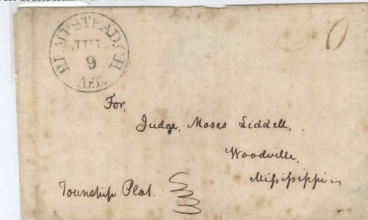 HEMPSTEAD C.H.
JUL
9
A.T.
20
For,
Judge, Moses Liddell,
Woodville,
Mifsifsippi
Township Plat.